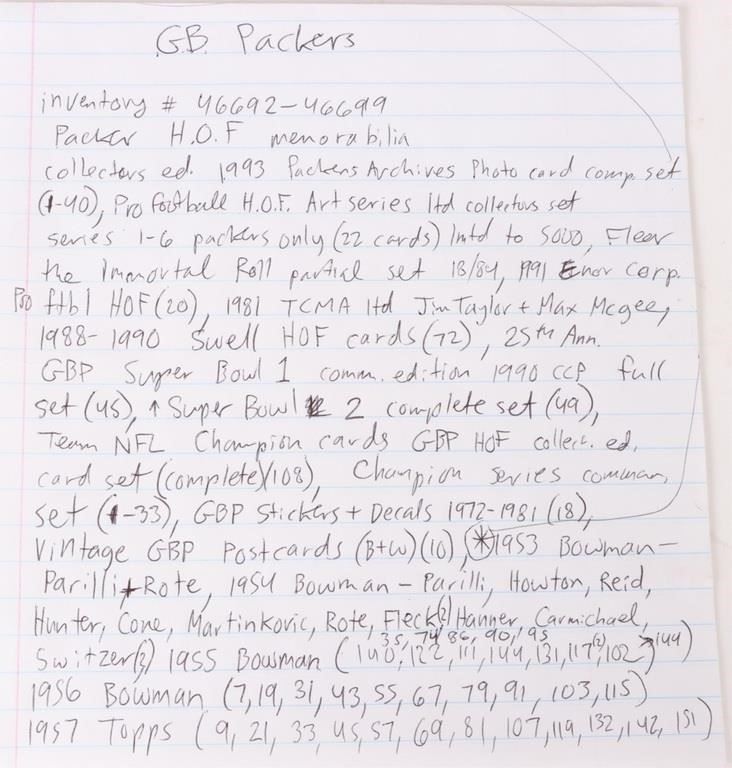 G.B. Packers
inventory # 46692-46699
Packer H.O.F memorabilia
collectors ed. 1993 Packers Archives Photo card comp. set
(1-40), Pro football H.O.F. Art series ltd collectors set
series 1-6 packers only (22 cards) lmtd to 5000, Fleer
the Immortal Roll partial set 18/84, 1991 Enor Corp.
Pro ftbl HOF (20), 1981 TCMA ltd Jim Taylor + Max Mcgee,
1988-1990 Swell HOF cards (72), 25th Ann.
GBP Super Bowl 1 comm. edition 1990 CCP full
set (45), ↑ Super Bowl 2 complete set (49),
Team NFL Champion cards GBP HOF collect. ed.
card set (complete)(108), Champion series comman.
set (1-33), GBP Stickers + Decals 1972-1981 (18),
Vintage GBP Postcards (B+W)(10), * 1953 Bowman-
Parilli + Rote, 1954 Bowman - Parilli, Howton, Reid,
Hunter, Cone, Martinkovic, Rote, Fleck(2) Hanner, Carmichael,
35, 74, 86, 90, 95
Switzer(2) 1955 Bowman (140, 122, 111, 144, 131, 117(2), 102, 144)
1956 Bowman (7, 19, 31, 43, 55, 67, 79, 91, 103, 115)
1957 Topps (9, 21, 33, 45, 57, 69, 81, 107, 119, 132, 142, 151)